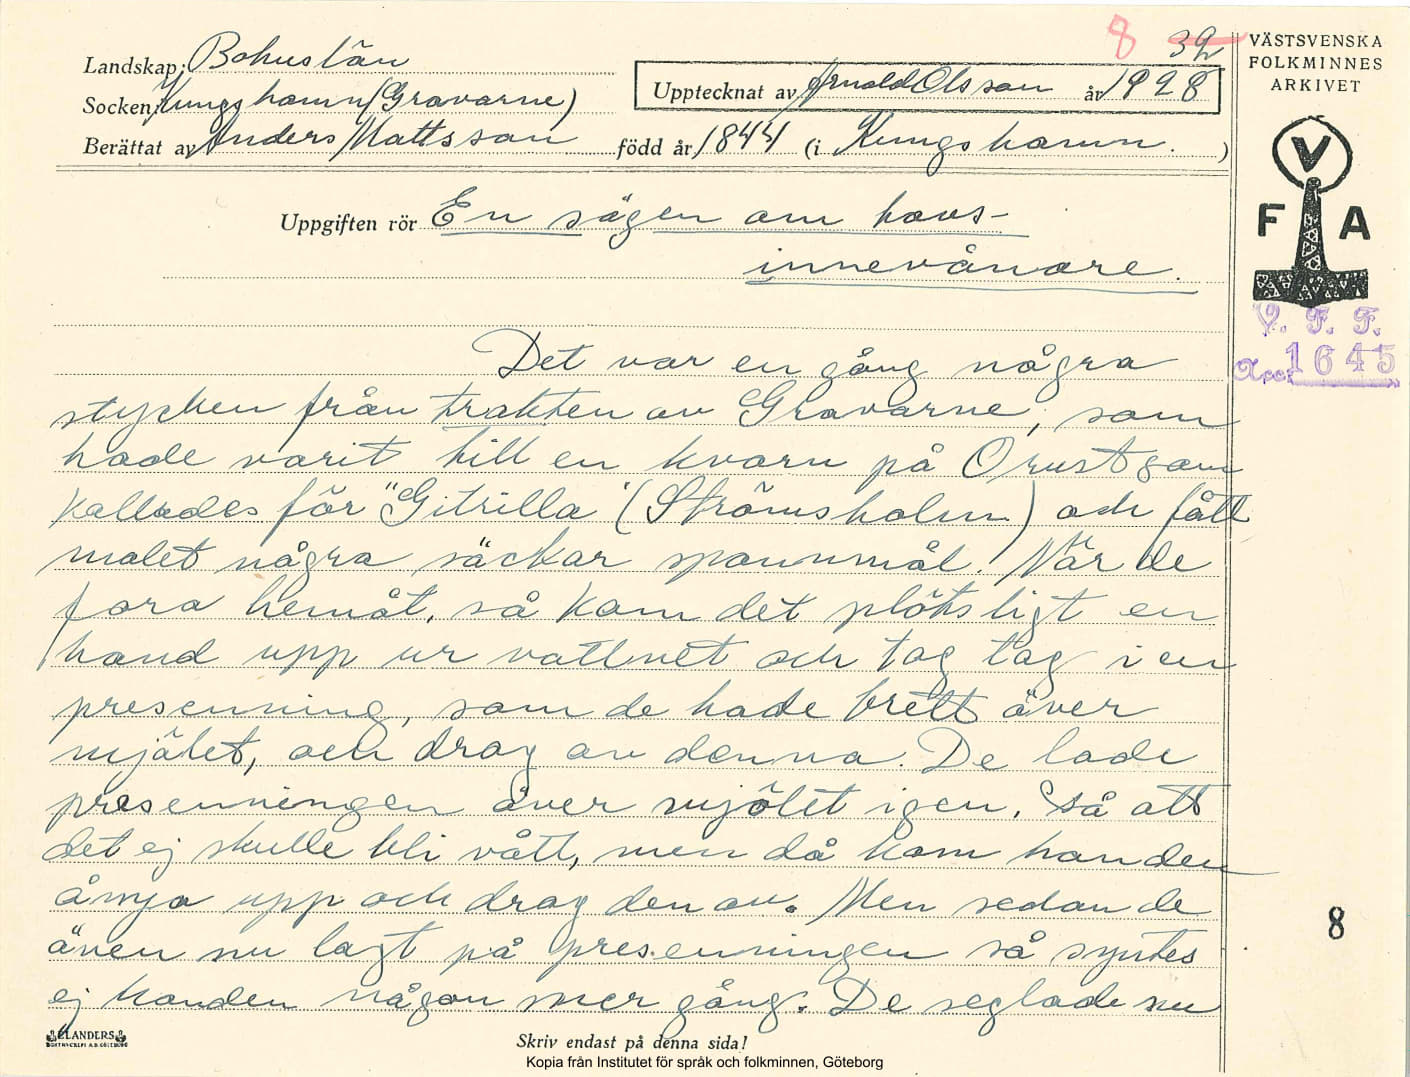 8 32
VÄSTSVENSKA
FOLKMINNES
ARKIVET
Landskap: Bohuslän
Socken: Kungshamn (Gravarne)
Upptecknat av Arnold Olsson år 1928
Berättat av Anders Mattsson född år 1844 (i Kungshamn. )
V
F A
V. F. F.
Acc. 1645
Uppgiften rör En sägen om havs-
innevånare.
Det var en gång några
stycken från trakten av Gravarne, som
hade varit till en kvarn på Orust som
kallades för "Gitrilla" (Strömsholm) och fått
malet några säckar spannmål. När de
foro hemåt, så kom det plötsligt en
hand upp ur vattnet och tog tag i en
presenning, som de hade brett över
mjölet, och drog av denna. De lade
presenningen över mjölet igen, så att
det ej skulle bli vått, men då kom handen
ånyo upp och drog den av. Men sedan de
även nu lagt på presenningen så syntes
ej handen någon mer gång. De seglade nu
8
ELANDERS
BOKTRYCKERI A.B. GÖTEBORG
Skriv endast på denna sida!
Kopia från Institutet för språk och folkminnen, Göteborg